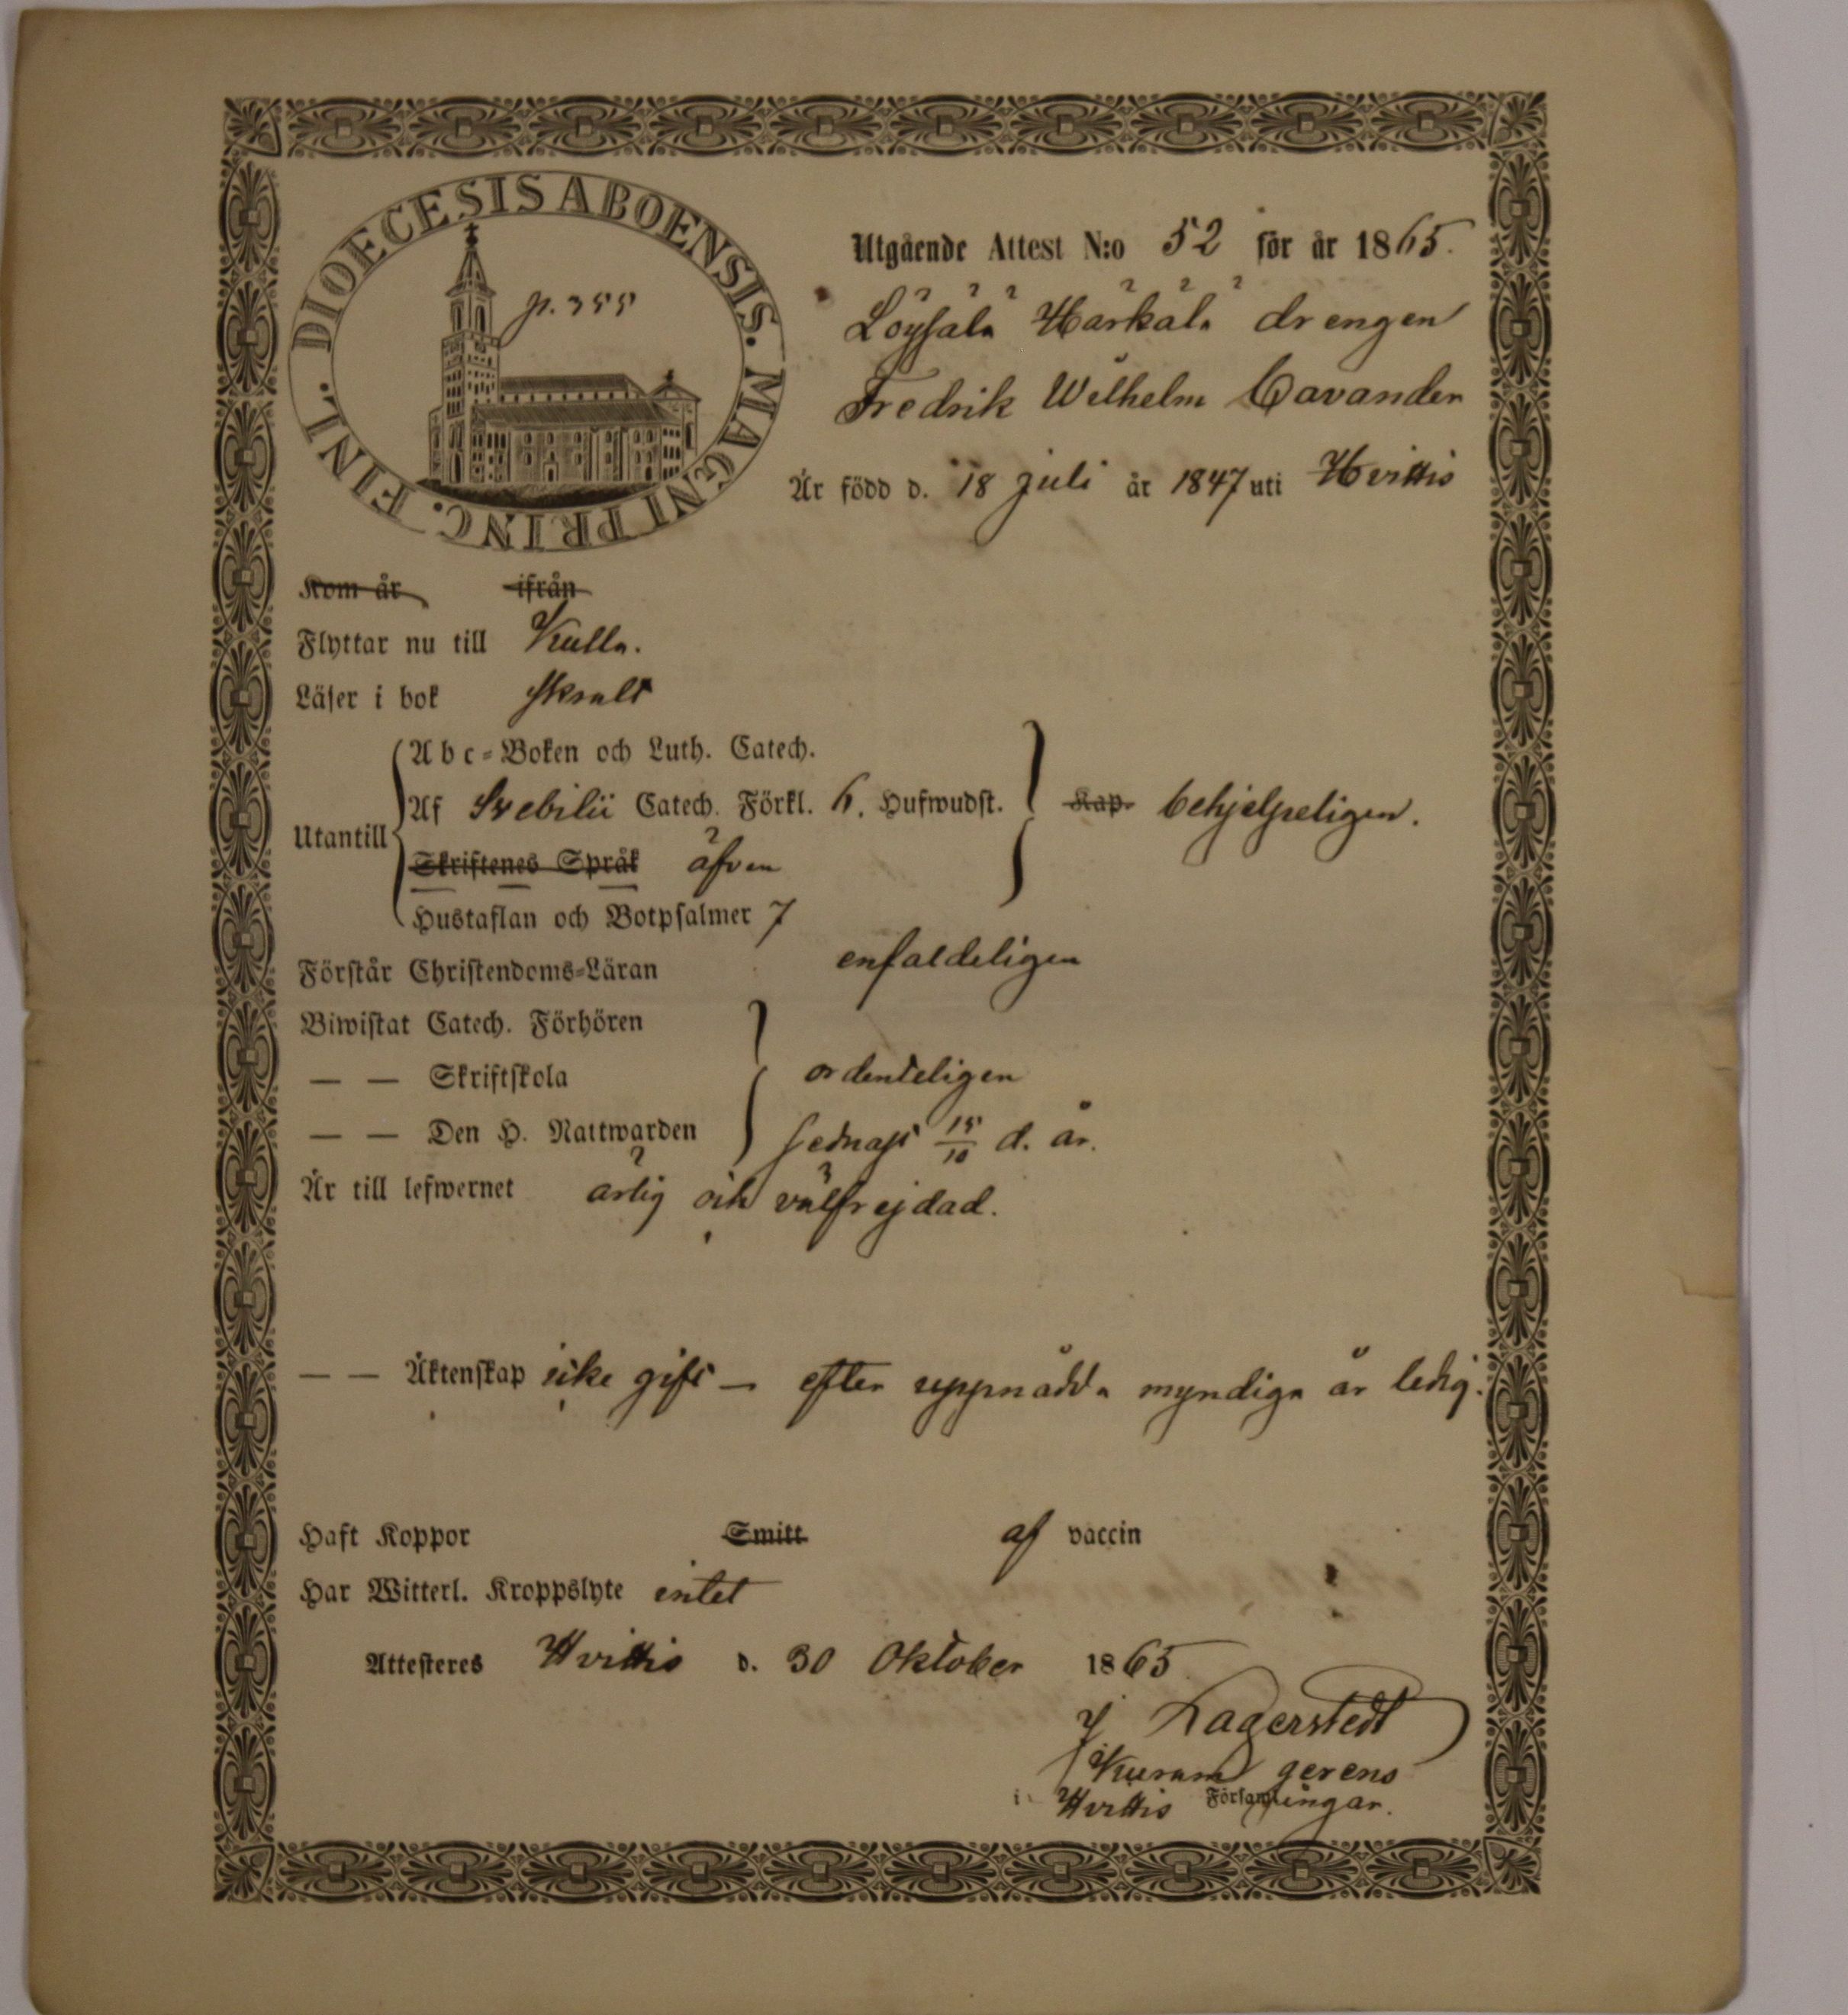 DIOECESIS ABOENSIS. MAGNI PRINC. FINL.
p. 355
Utgående Attest N:o 52 för år 1865.
Löysälä Härkälä drengen
Fredrik Wilhelm Cavander
Är född d. 18 Juli år 1847 uti Hvittis
Kom år ifrån
Flyttar nu till Kulla.
Läser i bok skralt
Utantill
Abc-Boken och Luth. Catech.
Af Svebilii Catech. Förkl. 6. Hufwudst. Kap. behjelpeligen.
Skriftenes Språk äfven
Hustaflan och Botpsalmer 7
Förstår Christendoms-Läran enfaldeligen
Biwistat Catech. Förhören
— — Skriftskola ordenteligen
— — Den H. Nattwarden sednast 15/10 d. år.
Är till lefwernet ärlig och välfrejdad.
— — Äktenskap icke gift — efter uppnådda myndiga år ledig.
Haft Koppor Smitt af vaccin
Har Witterl. Kroppslyte intet
Attesteres Hvittis d. 30 Oktober 1865
J Lagerstedt
Kuram gerens
i Hvittis Församlingar.